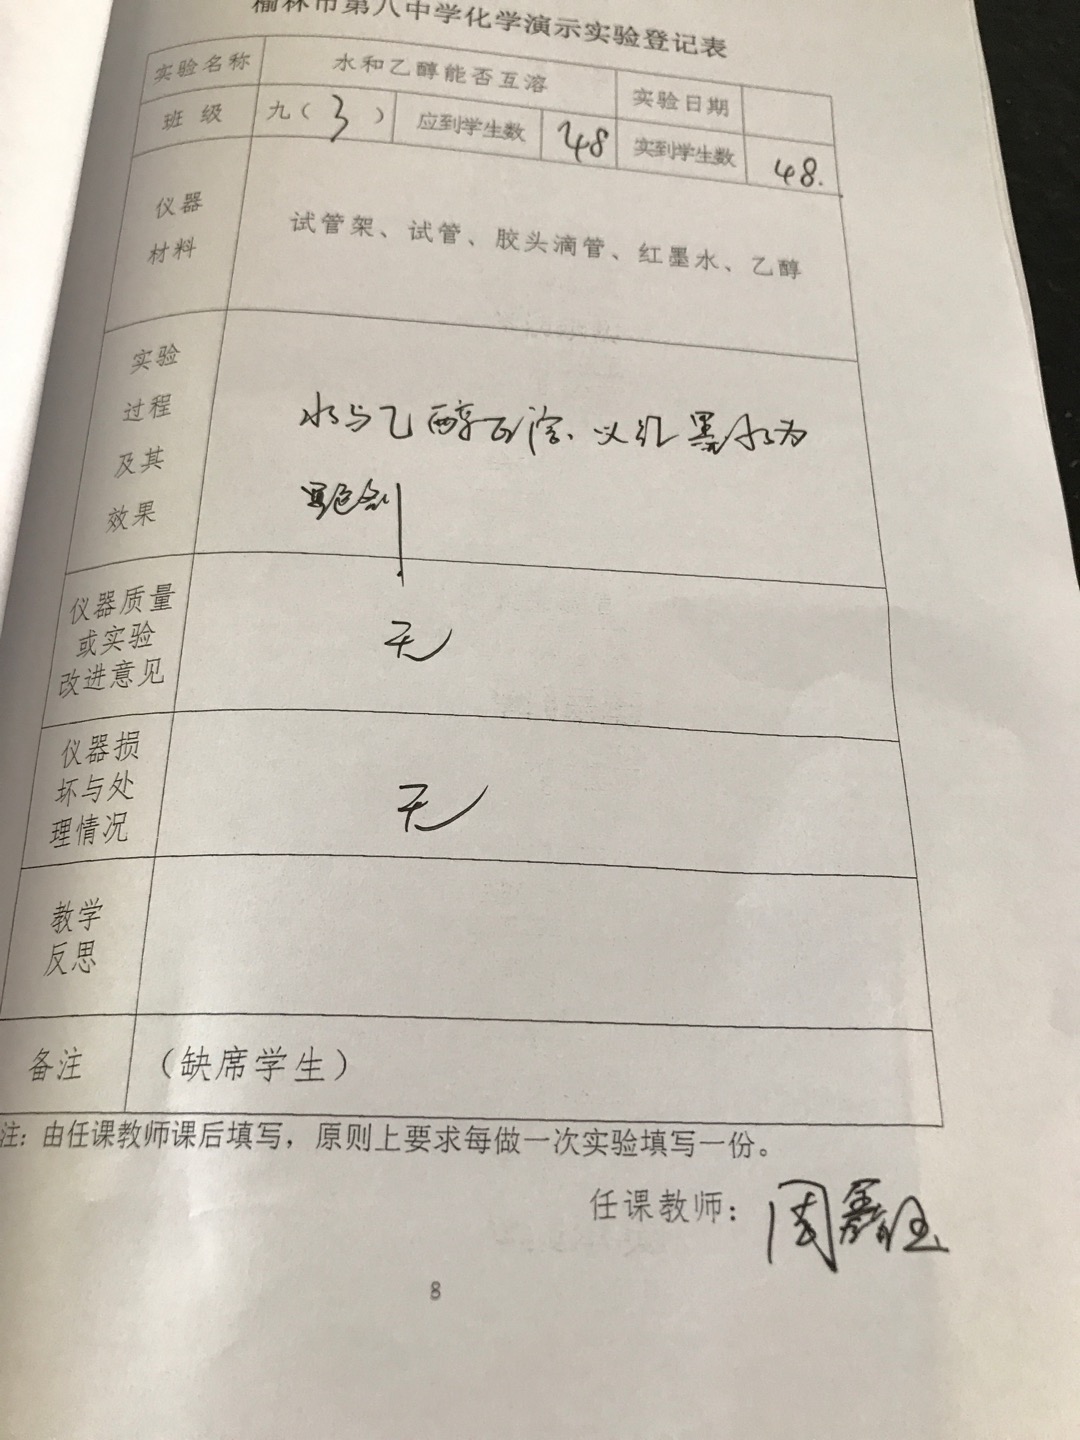 榆林市第八中学化学演示实验登记表
实验名称 水和乙醇能否互溶 实验日期
班 级 九（3） 应到学生数 48 实到学生数 48.
仪器
材料
试管架、试管、胶头滴管、红墨水、乙醇
实验
过程
及其
效果
水与乙醇互溶、以红墨水为
显色剂
仪器质量
或实验
改进意见
无
仪器损
坏与处
理情况
无
教学
反思
备注 （缺席学生）
注：由任课教师课后填写，原则上要求每做一次实验填写一份。
任课教师：周
8